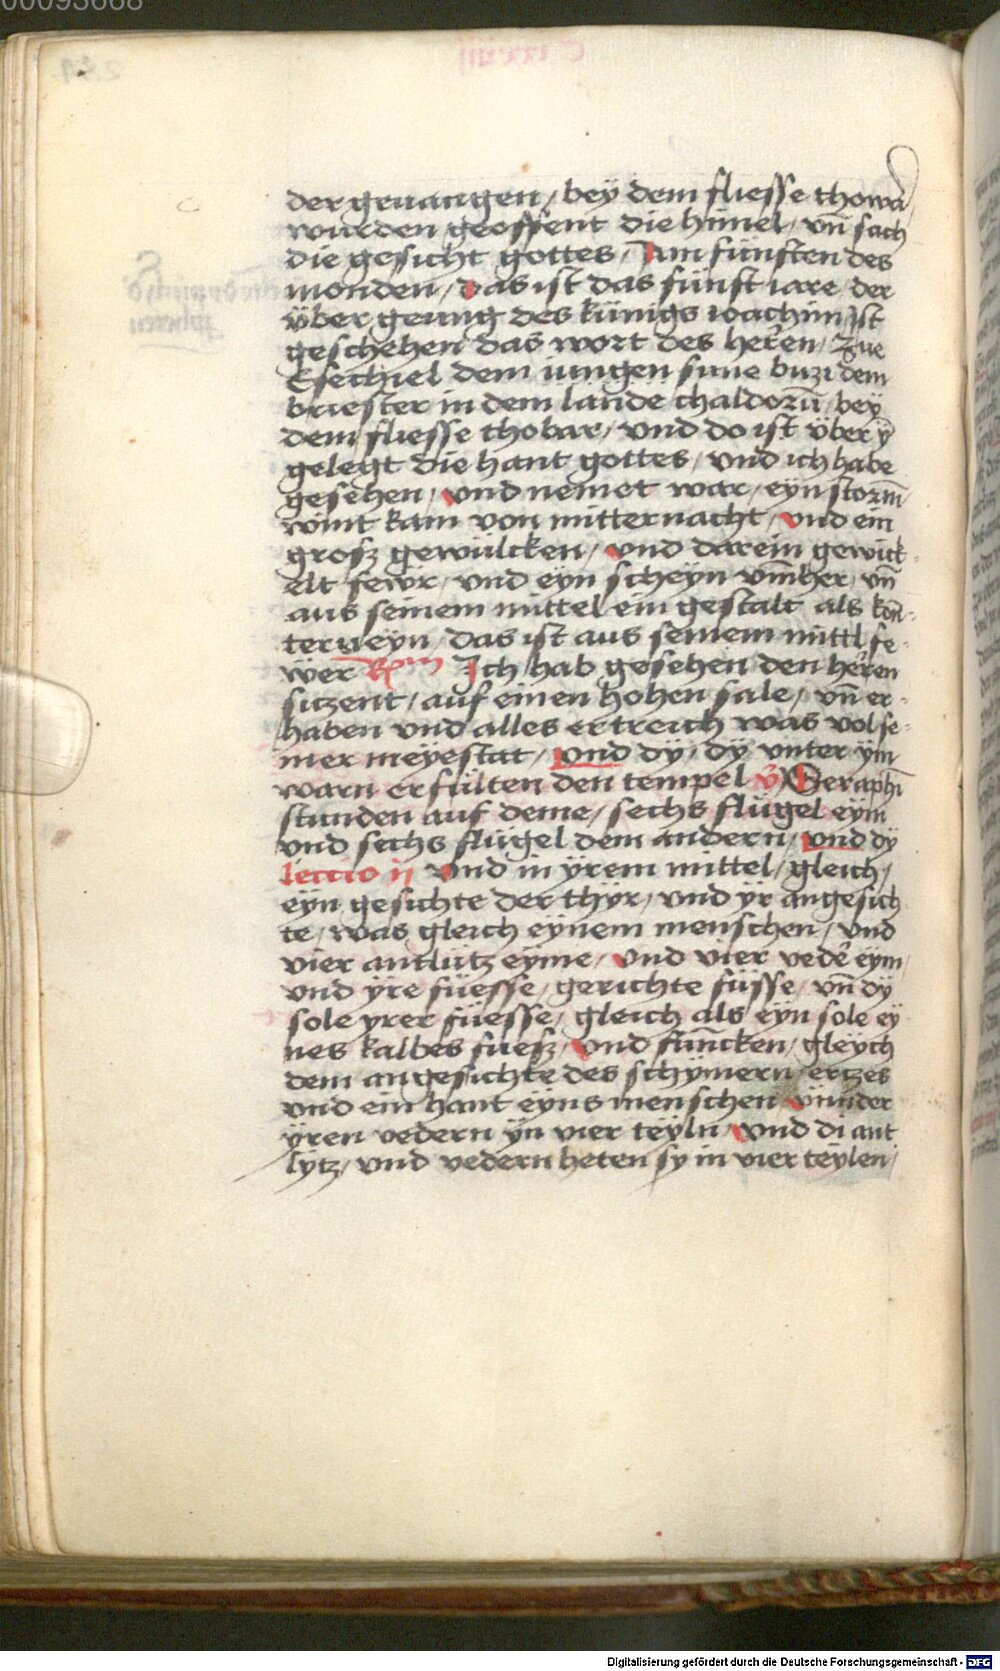 00093668
der geuangen / bey dem fliesse thowa
wurden geoffent die himel / vn̄ sach
die gesicht gottes / Am fünften des
monden / das ist das fünft iare / der
über geung des künigs ioachim ist
geschehen das wort des heren / zue
Esechiel dem iungen sune buzi dem
briester in dem lande chaldorū / bey
dem fliesse thobar / vnd do ist über ÿ
gelegt die hant gottes / vnd ich habe
gesehen / vnd nemet war / eyn storm̄
wint kam von mitternacht / vnd ein
grosz gewülcken / vnd darein gewick
elt fewr / vnd eyn scheyn vm̄her / vn̄
aus seinem mittel ein gestalt als kon̄
terveyn / das ist aus seinem mittl fe
wer Rm Ich hab gesehen den heren
siczent / auf einen hohen sale / vn̄ er
haben vnd alles ertreich was vol se
iner meyestat / vnd dy / dÿ vnter ym
warn erfülten den tempel v̄ Seraphī
stunden auf deme / sechs flügel eym
vnd sechs flügel dem andern / vnd dÿ
leccio ij vnd in ÿrem mittel / gleich /
eyn gesichte der thÿr / vnd ÿr angesich
te / was gleich eynem menschen / vnd
vier antlütz eyme / vnd vier veder eym
vnd ÿre füesse / gerichte füsse / vn̄ dÿ
sole yrer füesse / gleich als eyn sole eÿ
nes kalbes fuesz / vnd fun̄cken / gleÿch
dem angesichte des schymern ertzes
vnd ein hant eyns menschen vnnder
ÿren vedern ÿn vier teÿln / vnd di ant
lÿtz / vnd vedern heten sy in vier teÿlen /
Digitalisierung gefördert durch die Deutsche Forschungsgemeinschaft - DFG